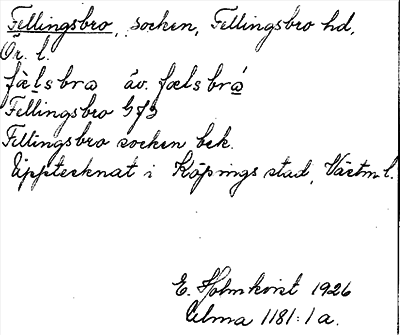 Fellingsbro, socken, Fellingsbro hd,
Ör. l.
fæ̀lsbra äv. fælsbrá
Fellingsbro 573
Fellingsbro socken bek.
Upptecknat i Köpings stad, Västm. l.
E. Holmkvist 1926
Ulma 1181:1a.